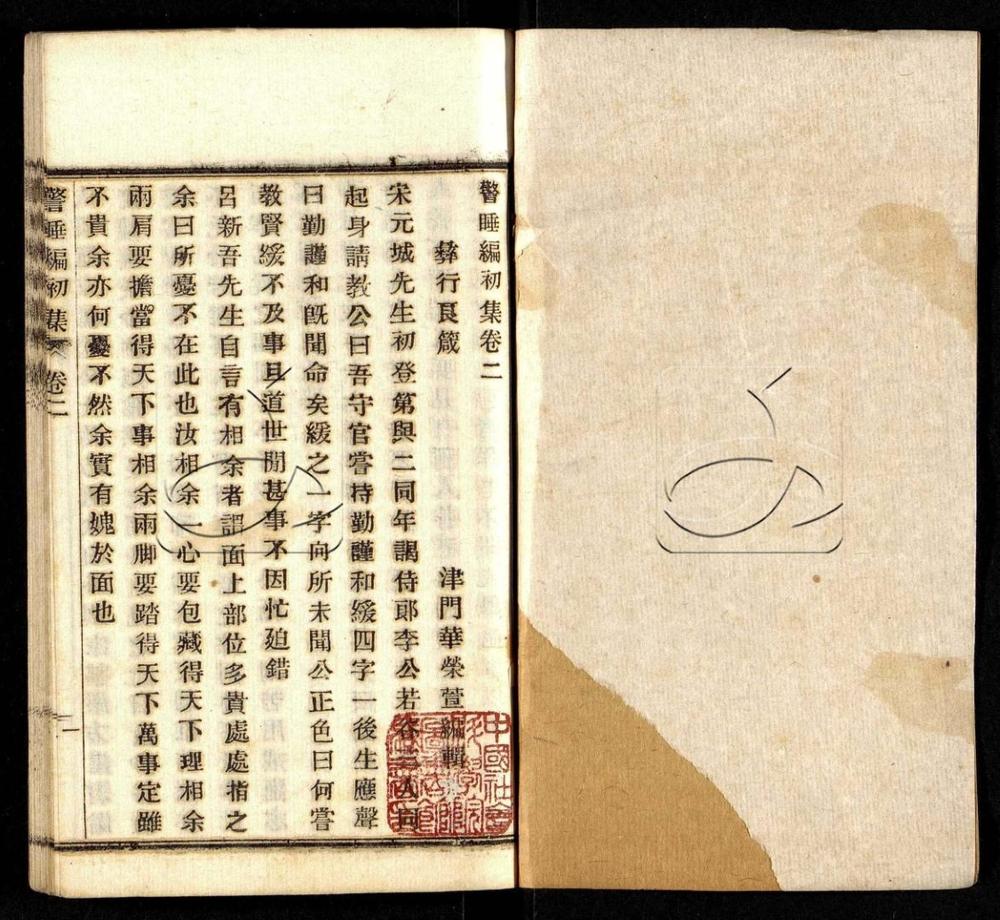 警睡編初集卷二
彝行良箴　津門華榮萱編輯
宋元城先生初登第與二同年謁侍郎李公若谷三人同
起身請教公曰吾守官嘗持勤謹和緩四字一後生應聲
曰勤謹和旣聞命矣緩之一字向所未聞公正色曰何嘗
教賢緩不及事且道世間甚事不因忙廹錯
呂新吾先生自言有相余者謂面上部位多貴處處指之
余曰所憂不在此也汝相余一心要包藏得天下理相余
兩肩要擔當得天下事相余兩脚要踏得天下萬事定雖
不貴余亦何憂不然余實有媿於面也
警睡編初集　卷二　一